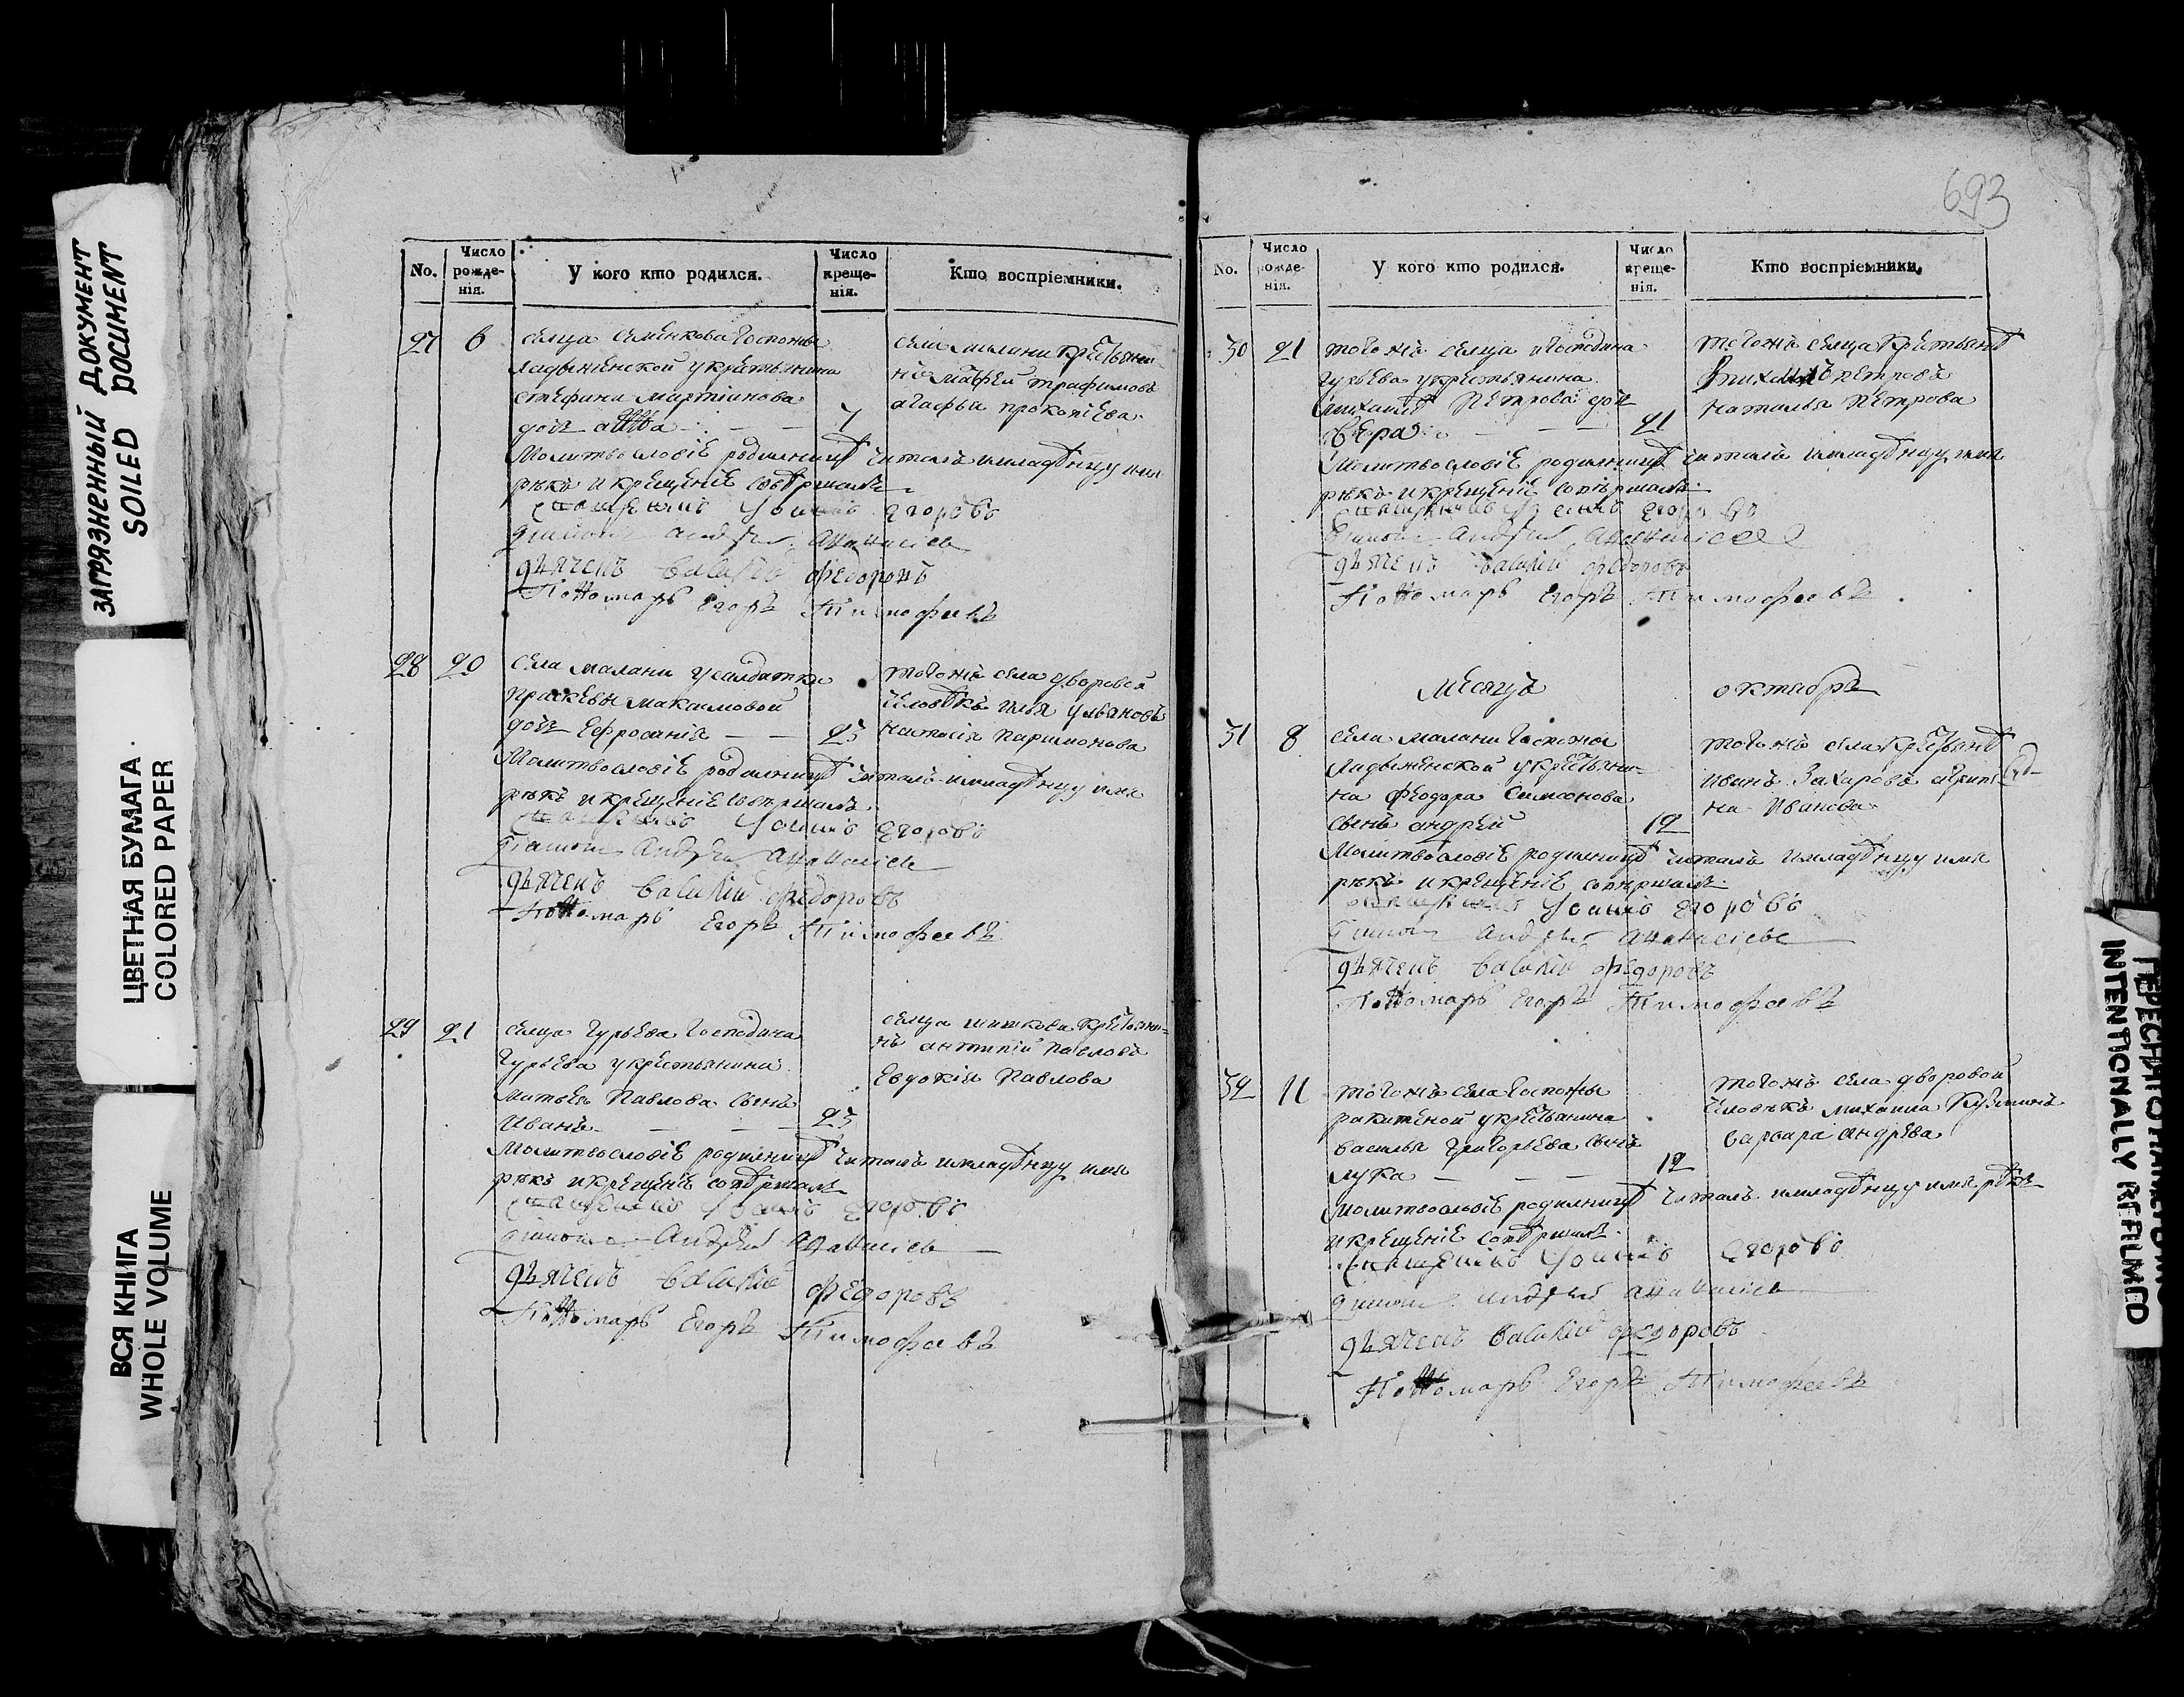 693
ЗАГРЯЗНЕННЫЙ ДОКУМЕНТ
SOILED DOCUMENT
ЦВЕТНАЯ БУМАГА
COLORED PAPER
ВСЯ КНИГА
WHOLE VOLUME
No.
Число рожде-нія.
У кого кто родился.
Число креще-нія.
Кто воспріемники.
27 6
сельца Семенкова Госпожи
Ладыженской у крестьянина
Стефана Мартинова
дочь анна 7
села малани крестьяни-
нъ Матфей трафимовъ
агафья прокопіева
Молитвословіе родильницѣ читалъ имладѣнцу имя
рѣкъ и крещеніе совѣршалъ
Священникъ Іоаннъ Егоровъ
Диаконъ Андрей Афанасіевъ
дьячекъ Василий федоровъ
Пономарь Егоръ Тимофеевъ
28 20
села малани у салдатки
праскевы максимовой
дочь Ефросинія 23
тогожъ села дворовой
человѣкъ илья ульяновъ
настасія паримонова
Молитвословіе родильницѣ читалъ имладѣнцу имя
рѣкъ и крещеніе совѣршалъ
Священникъ Іоаннъ Егоровъ
Диаконъ Андрей Афанасіевъ
дьячекъ Василий федоровъ
Пономарь Егоръ Тимофеевъ
29 21
сельца Гурьева Господина
Гурьева у крестьянина
Матвея Павлова сынъ
Иванъ 23
сельца шишкова крестьяни-
нъ антипій Павловъ
Евдокія Павлова
Молитвословіе родильницѣ читалъ имладѣнцу имя
рѣкъ и крещеніе совѣршалъ
Священникъ Іоаннъ Егоровъ
Диаконъ Андрей Афанасіевъ
дьячекъ Василий федоровъ
Пономарь Егоръ Тимофеевъ
No.
Число рожде-нія.
У кого кто родился.
Число креще-нія.
Кто воспріемники.
30 21
тогожъ сельца Господина
Гурьева у крестьянина
Петрова дочь
Вера 21
тогожъ сельца
петровъ
Наталья Петрова
Молитвословіе родильницѣ читалъ имладѣнцу имя
рѣкъ и крещеніе совѣршалъ
Священникъ Іоаннъ Егоровъ
Диаконъ Андрей Афанасіевъ
дьячекъ Василий федоровъ
Пономарь Егоръ Тимофеевъ
Месяцъ октябрь
31 8
села малани Госпожи
Ладыженской у крестьяни-
на Феодора Симеонова
сынъ андрей 12
тогожъ села
иванъ Захаровъ
на Иванова
Молитвословіе родильницѣ читалъ имладѣнцу имя
рѣкъ и крещеніе совѣршалъ
Священникъ Іоаннъ Егоровъ
Диаконъ Андрей Афанасіевъ
дьячекъ Василий федоровъ
Пономарь Егоръ Тимофеевъ
32 11
тогожъ села Госпожи
ракитиной у крестьянина
василья Григорьева сынъ
лука 12
тогожъ села дворовой
человѣкъ михаила Кузминъ
варвара андрева
молитвословіе родильницѣ читалъ имладѣнцу имя рѣкъ
и крещеніе совѣршалъ
Священникъ Іоаннъ Егоровъ
Диаконъ Андрей Афанасіевъ
дьячекъ Василий федоровъ
Пономарь Егоръ Тимофеевъ
INTENTIONALLY REFILMED